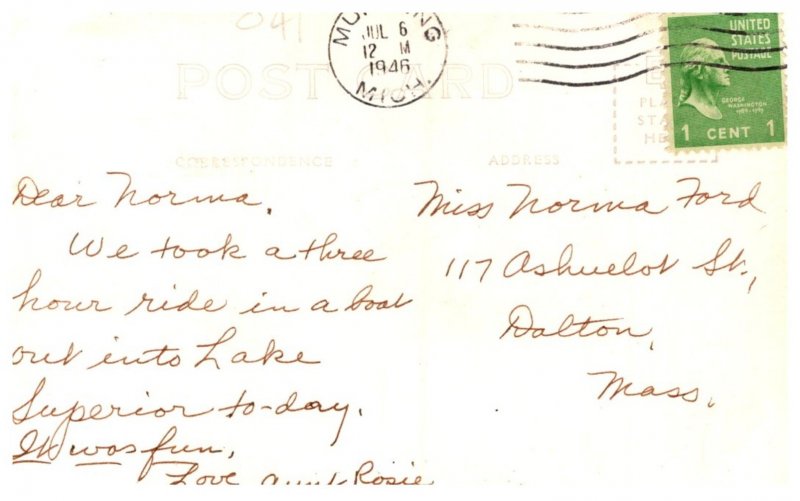 041
MUNISING
JUL 6
12 M
1946
MICH.
UNITED
STATES
POSTAGE
GEORGE
WASHINGTON
1789-1797
1 CENT 1
POST CARD
PLA
STA
HE
CORRESPONDENCE
ADDRESS
Dear Norma,
We took a three
hour ride in a boat
out into Lake
Superior to-day.
It was fun.
Love Aunt Rosie
Miss Norma Ford
117 Ashuelot St.,
Dalton,
Mass.